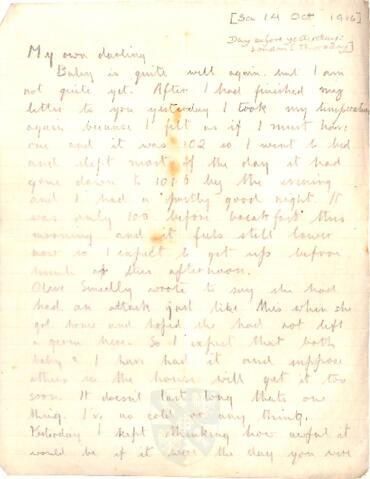 [Sa 14 Oct 1916]
Day before yesterday:
London (Thursday)]
My own darling
Baby is quite well again, but I am
not quite yet. After I had finished my
letter to you yesterday I took my temperature
again because I felt as if I must have
one and it was 102 so I went to bed
and slept most of the day it had
gone down to 101 by the evening
and I had a partly good night. It
was only 100 before breakfast this
morning and it feels still lower
now so I expect to get up before
lunch or this afternoon.
Olave wrote to say she had
had an attack just like this when she
got home and hoped she had not left
a germ here. So I expect that both
baby & I have had it and suppose
others in the house will get it too
soon. It doesn't last long thats one
thing. I've no cold or any thing.
Yesterday I kept thinking how awful it
would be if it were the day you were